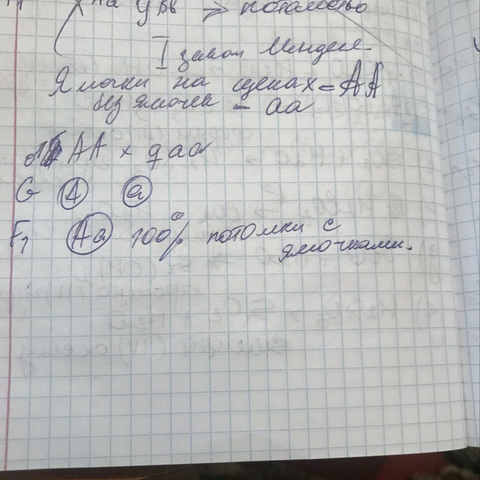 Аа УВв => потомство
I закон Менделе
Ямочки на щеках = АА
без ямочек - аа
АА × ♀ аа
G А а
F1 Аа 100% потомки с
ямочками.